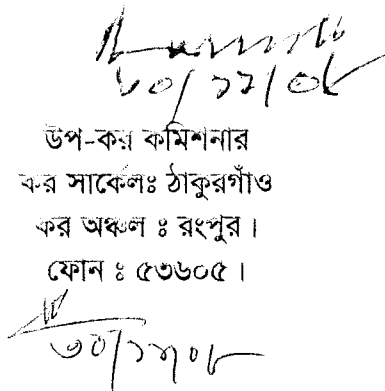 ৩০/১১/০৮
উপ-কর কমিশনার
কর সার্কেলঃ ঠাকুরগাঁও
কর অঞ্চল ঃ রংপুর।
ফোন ঃ ৫৩৬০৫।